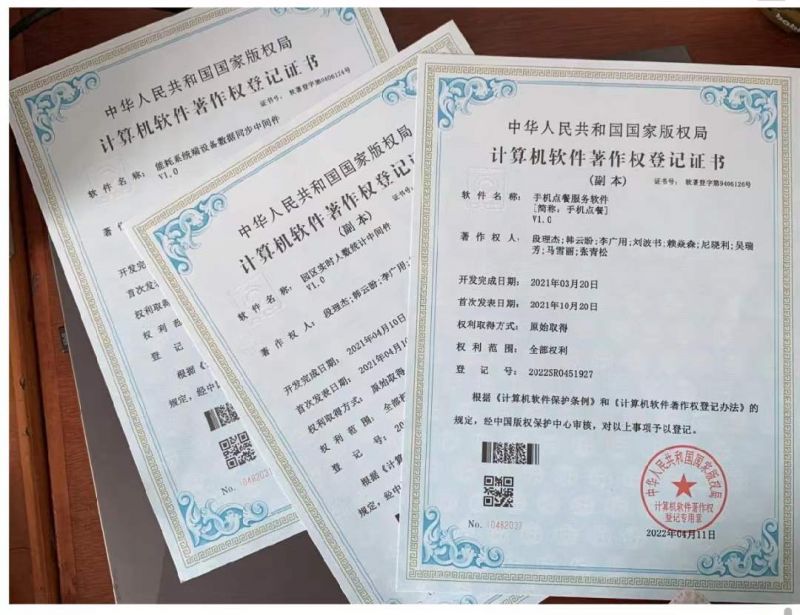 中华人民共和国国家版权局
计算机软件著作权登记证书
证书号: 软著登字第9406124号
软 件 名 称: 能耗系统端设备数据同步中间件
V1.0
著
开发完
首次发
权利取
权 利 范
登 记
根据《
规定,经中
No.
中华人民共和国国家版权局
计算机软件著作权登记证
(副 本)
软 件 名 称: 园区实时人数统计中间件
V1.0
著 作 权 人: 段理杰;韩云盼;李广用;
开发完成日期: 2021年04月10日
首次发表日期: 2021年04月10
权利取得方式: 原始取得
权 利 范 围: 全部权
登 记 号: 20
根据《计算
规定,经中
No.
中华人民共和国国家版权局
计算机软件著作权登记证书
(副 本)
证书号: 软著登字第9406126号
软 件 名 称: 手机点餐服务软件
[简称:手机点餐]
V1.0
著 作 权 人: 段理杰;韩云盼;李广用;刘波书;赖焱森;尼晓利;吴瑞
芳;马雪丽;张青松
开发完成日期: 2021年03月20日
首次发表日期: 2021年10月20日
权利取得方式: 原始取得
权 利 范 围: 全部权利
登 记 号: 2022SR0451927
根据《计算机软件保护条例》和《计算机软件著作权登记办法》的
规定,经中国版权保护中心审核,对以上事项予以登记。
中华人民共和国国家版权局
计算机软件著作权
登记专用章
No.
2022年04月11日